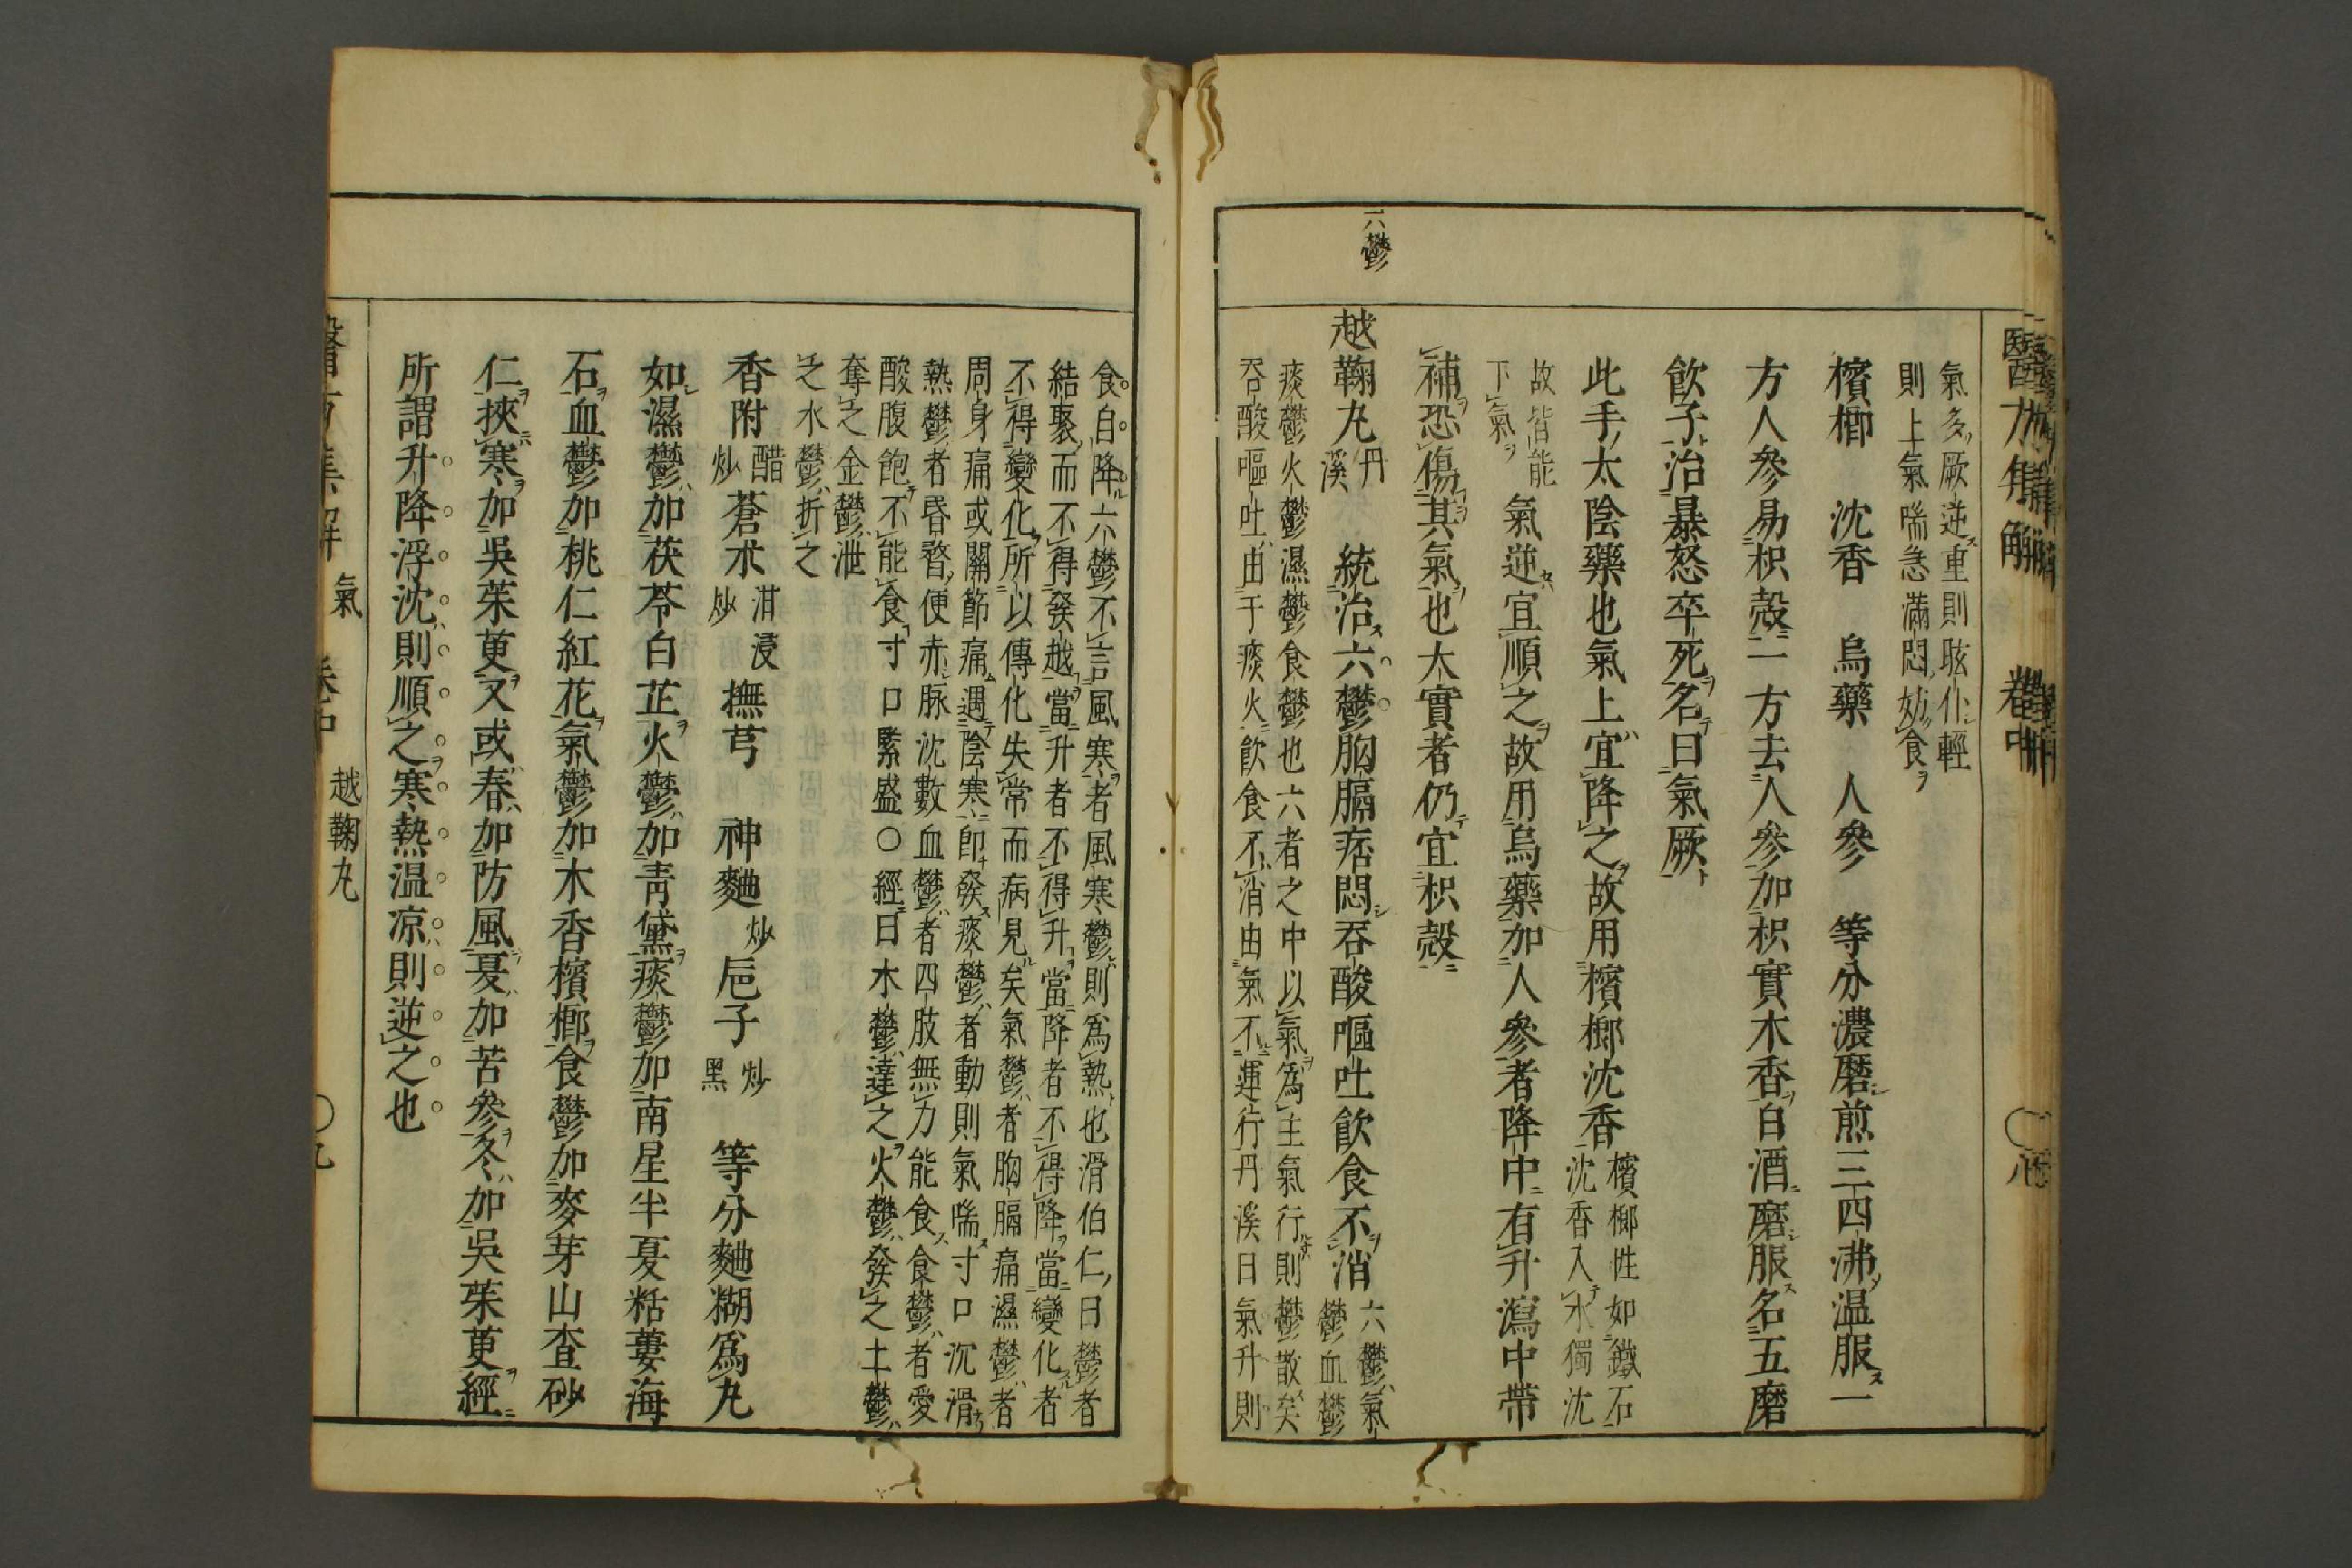 醫方集解 卷中
氣多厥逆重則眩仆輕
則上氣喘急滿悶妨食
檳榔 沈香 烏藥 人參 等分濃磨煎三四沸温服一
方人參易枳殼一方去人參加枳實木香白酒磨服名五磨
飲子治暴怒卒死名曰氣厥
此手太陰藥也氣上宜降之故用檳榔沈香
檳榔性如鐵石
沈香入水獨沈
故皆能
下氣
氣逆宜順之故用烏藥加人參者降中有升瀉中帶
補恐傷其氣也大實者仍宜枳殼
六鬱
越鞠丸
丹
溪
統治六鬱胸膈痞悶吞酸嘔吐飲食不消
六鬱氣
鬱血鬱
痰鬱火鬱濕鬱食鬱也六者之中以氣爲主氣行則鬱散矣
吞酸嘔吐由于痰火飲食不消由氣不運行丹溪曰氣升則
食自降六鬱不言風寒者風寒鬱則爲熱也滑伯仁曰鬱者
結聚而不得發越當升者不得升當降者不得降當變化者
不得變化所以傳化失常而病見矣氣鬱者胸膈痛濕鬱者
周身痛或關節痛遇陰寒即發痰鬱者動則氣喘寸口沉滑
熱鬱者昏瞀便赤脉沈數血鬱者四肢無力能食食鬱者愛
酸腹飽不能食寸口緊盛○經曰木鬱達之火鬱發之土鬱
奪之金鬱泄
之水鬱折之
香附
醋
炒
蒼朮
泔浸
炒
撫芎 神麯
炒
巵子
炒
黑
等分麯糊爲丸
如濕鬱加茯苓白芷火鬱加青黛痰鬱加南星半夏栝蔞海
石血鬱加桃仁紅花氣鬱加木香檳榔食鬱加麥芽山查砂
仁挾寒加吳茱萸又或春加防風夏加苦參冬加吳茱萸經
所謂升降浮沈則順之寒熱温凉則逆之也
醫方集解 氣 卷中 越鞠丸 ○九